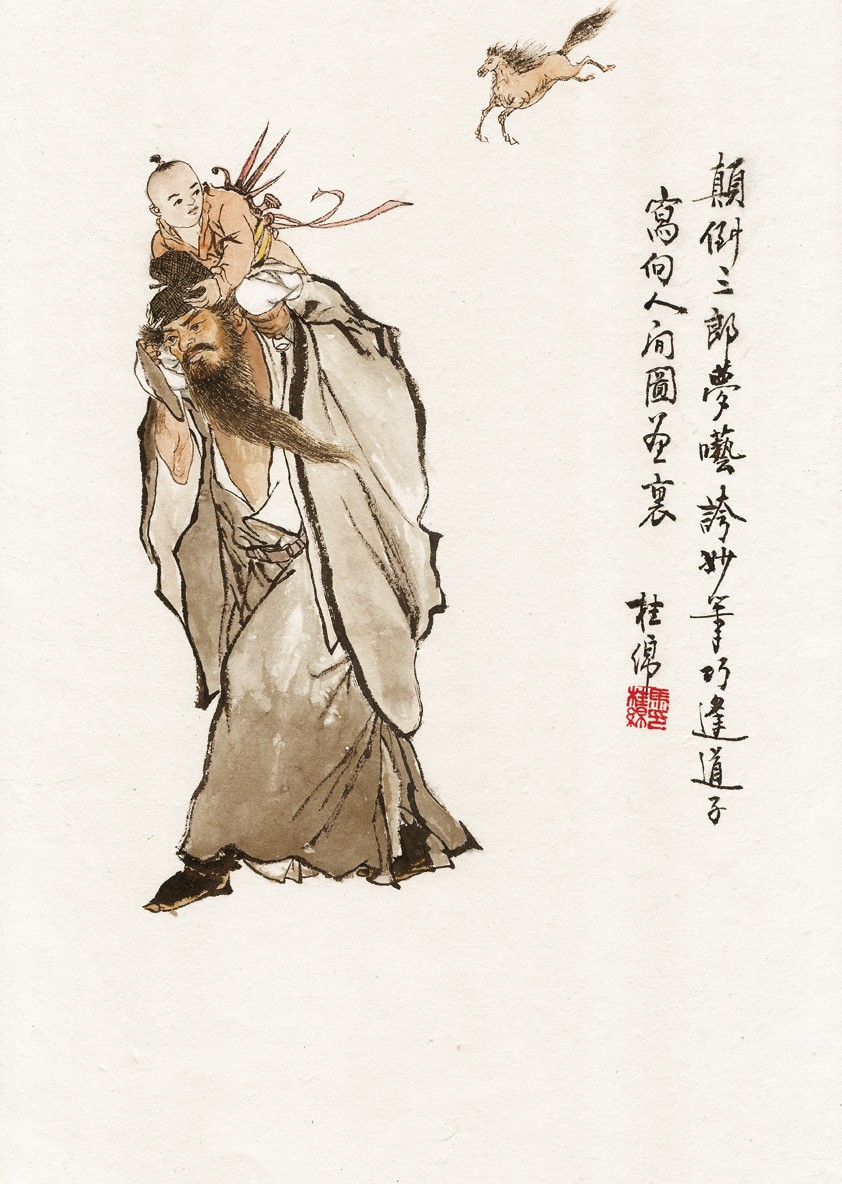 顛倒三郎夢囈誇妙筆巧逢道子
寫向人间圖畫裏
桂綿